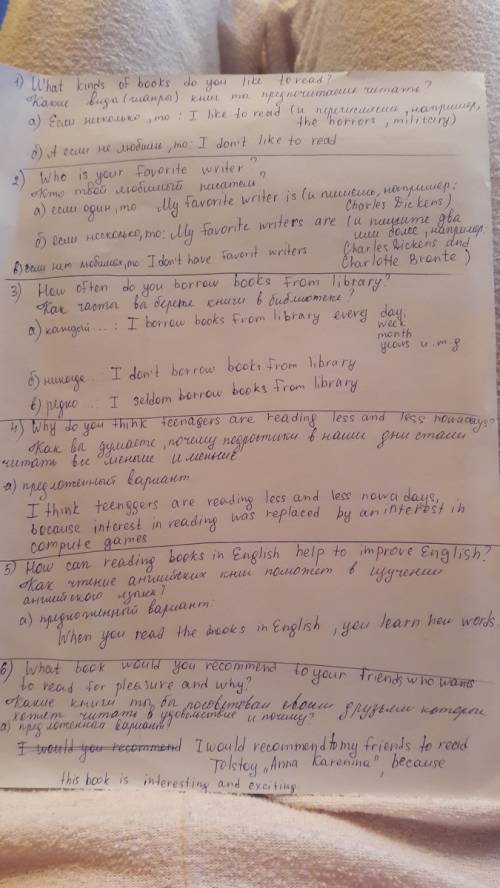 1) What kinds of books do you like to read?
Какие вида (жанры) книг ты предпочитаешь читать?
а) Если несколько, то: I like to read (и перечисляешь, например,
the horrors, military)
б) А если не любишь, то: I don't like to read
2) Who is your favorite writer?
Кто твой любимый писатель?
а) если один, то My favorite writer is (и пишешь, например:
Charles Dickens)
б) если несколько, то: My favorite writers are (и пишите два
или более, например:
Charles Dickens and
Charlotte Bronte)
в) если нет любимых, то I don't have favorit writers
3) How often do you borrow books from library?
Как часты вы берете книги в библиотеке?
а) каждый...: I borrow books from library every day,
week
month
years и.т.д
б) никогда...: I don't borrow books from library
в) редко... I seldom borrow books from library
4) Why do you think teenagers are reading less and less nowadays?
Как вы думаете, почему подростки в наши дни стали
читать все меньше и меньше
а) предложенный вариант
I think teenggers are reading lecs and less nowadays,
bocause interest in reading was replaced by an interest in
compute games
5) How can reading books in English help to improve English?
Как чтение английских книг поможет в изучении
английского языка?
а) предложенный вариант:
When you read the books in English, you learn new words.
6) What book would you recommend to your friends who wants
to read for pleasure and why?
Какие книги ты бы посоветовал своим друзьям которои
хотят читать в удовольствие и почему?
а) предложенный вариант:
I would you recommend I would recommend to my friends to read
Tolstoy „Anna Karenina", because
this book is interesting and exciting